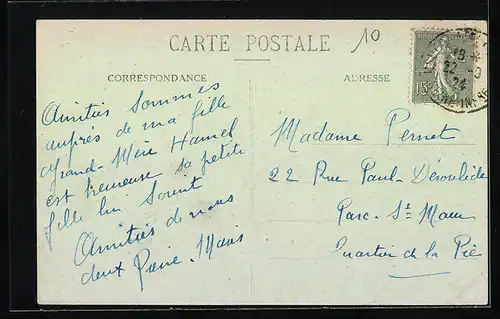 10
CARTE POSTALE
CORRESPONDANCE
ADRESSE
Amitiés Sommes
auprès de ma fille
Grand-Mère Hamel
est heureuse sa petite
fille lui Sourit
Amitiés de nous
deux Marie
Madame Pernet
22 Rue Paul-Déroulède
Parc-St-Maur
Quartier de la Pie
15
19
22-9
24